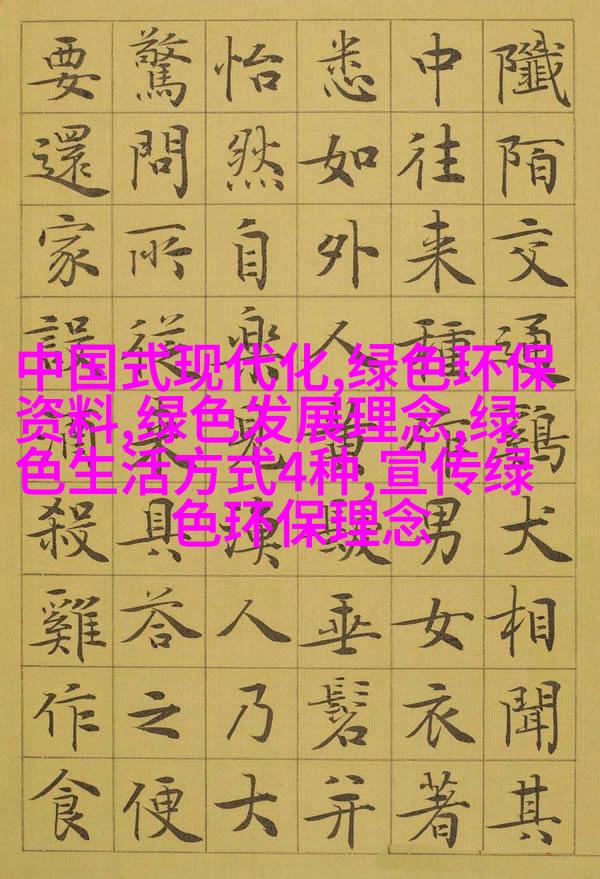 中国式现代化,绿色环保
资料,绿色发展理念,绿
色生活方式4种,宣传绿
色环保理念
陌交通鷄犬相聞其
中往来種作男女衣著
悉如外人黄髮垂髫并
怡然自樂見漁人乃大
驚問所從来具答之便
要還家設酒殺雞作食